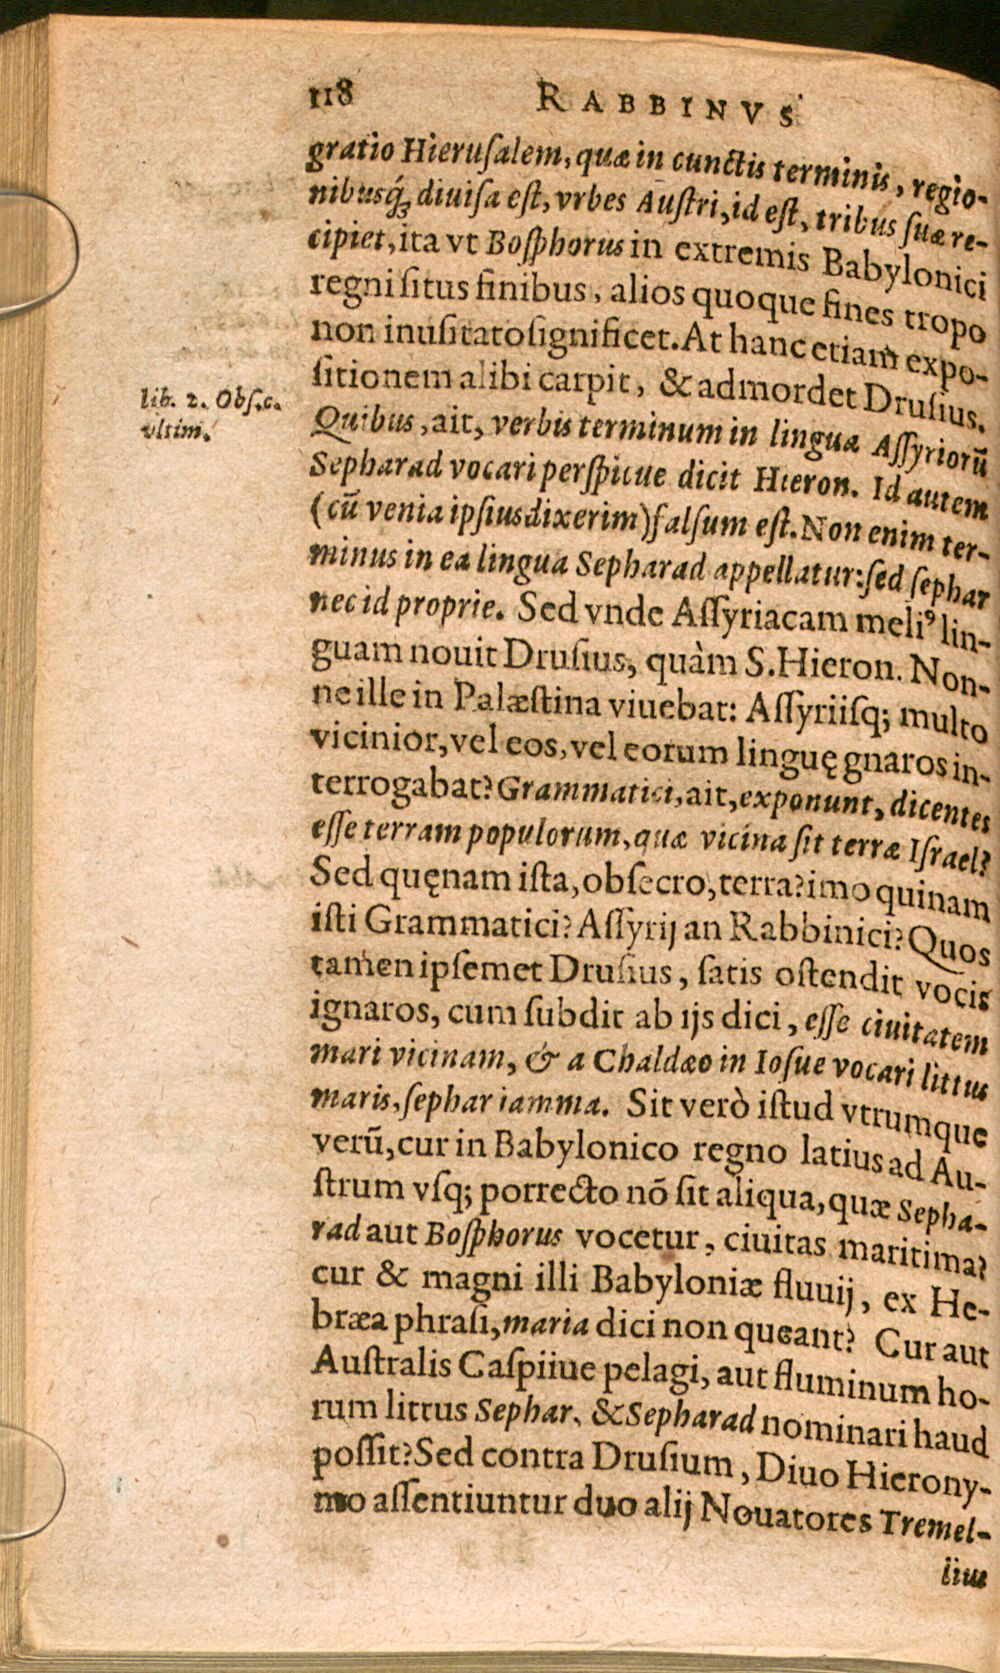 118 RABBINVS
gratio Hieruſalem, quæ in cunctis terminis, regio-
nibusq́; diuiſa eſt, vrbes Auſtri, id eſt, tribus ſuæ re-
cipiet, ita vt Boſphorus in extremis Babylonici
regni ſitus finibus, alios quoque fines tropo
non inuſitato ſignificet. At hanc etiam expo-
ſitionem alibi carpit, & admordet Druſius.
lib. 2. Obſ. c.
vltim.
Quibus, ait, verbis terminum in lingua Aſſyriorū
Sepharad vocari perſpicue dicit Hieron. Id autem
(cū venia ipſius dixerim) falſum eſt. Non enim ter-
minus in ea lingua Sepharad appellatur: ſed ſephar
nec id proprie. Sed vnde Aſſyriacam meliꝰ lin-
guam nouit Druſius, quàm S. Hieron. Non-
ne ille in Palæſtina viuebat: Aſſyriiſq; multo
vicinior, vel eos, vel eorum linguę gnaros in-
terrogabat? Grammatici, ait, exponunt, dicentes
eſſe terram populorum, quæ vicina ſit terræ Iſrael?
Sed quęnam iſta, obſecro, terra? imo quinam
iſti Grammatici? Aſſyrij an Rabbinici? Quos
tamen ipſemet Druſius, ſatis oſtendit vocis
ignaros, cum ſubdit ab ijs dici, eſſe ciuitatem
mari vicinam, & a Chaldæo in Ioſue vocari littus
maris, ſephar iamma. Sit verò iſtud vtrumque
verū, cur in Babylonico regno latius ad Au-
ſtrum vſq; porrecto nō ſit aliqua, quæ Sepha-
rad aut Boſphorus vocetur, ciuitas maritima?
cur & magni illi Babyloniæ fluuij, ex He-
bræa phraſi, maria dici non queant? Cur aut
Auſtralis Caſpiiue pelagi, aut fluminum ho-
rum littus Sephar, & Sepharad nominari haud
poſſit? Sed contra Druſium, Diuo Hierony-
mo aſſentiuntur duo alij Nouatores Tremel-
lius